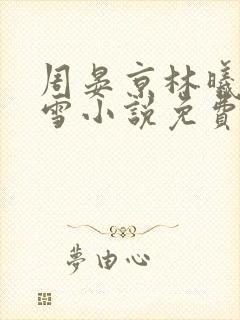 周晏京林曦
雪小說免費
夢由心